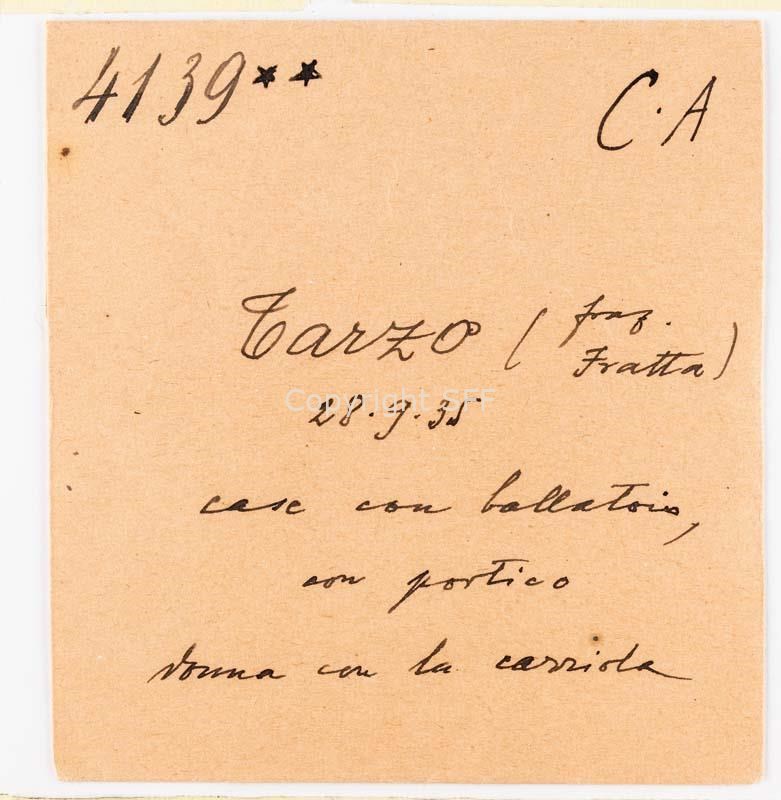 4139** C.A
Tarzo (fraz. Fratta)
Copyright SFF
28.9.35
case con ballatoio,
con portico
donna con la carriola